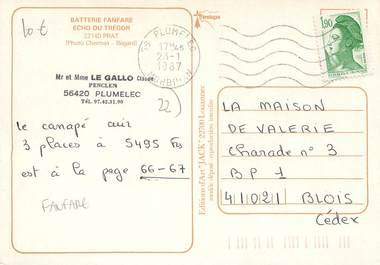 10 €
BATTERIE FANFARE
ECHO DU TRÉGOR
22140 PRAT
(Photo Chermat - Bégard)
Mr et Mme LE GALLO Claude
PENCLEN
56420 PLUMELEC
Tél. 97.42.31.90
22)
le canapé cuir
3 places à 5495 Frs
est à la page 66-67
FANFARE
Editions d'Art "JACK" 22700 Louannec
modèle déposé - reproduction interdite
PLUMELEC
17H45
23-7
1987
MORBIHAN
1,90
LA MAISON
DE VALERIE
Charade n° 3
BP 1
41021 BLOIS
Cédex